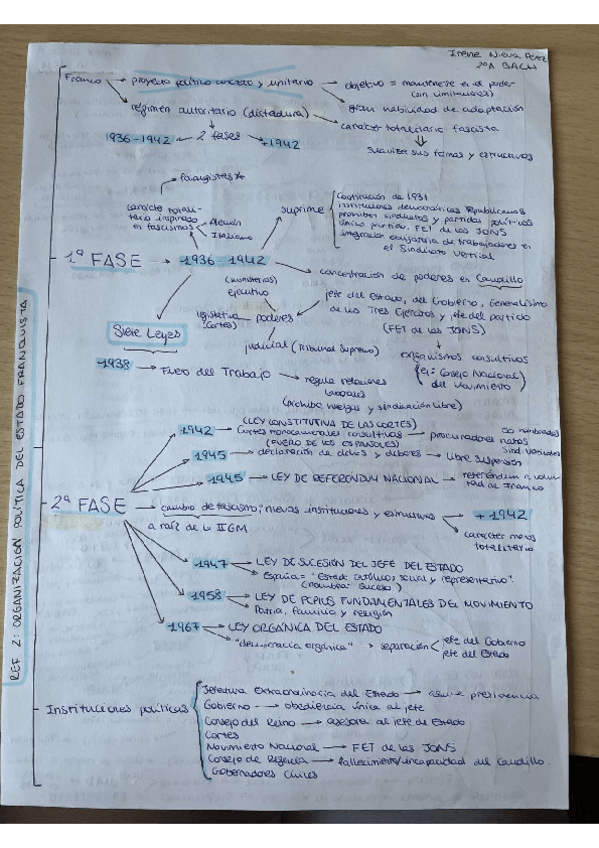 Irene Nieva Pérez
2ºA BACH
REF 2: ORGANIZACIÓN POLÍTICA DEL ESTADO FRANQUISTA
Franco → proyecto político concreto y unitario → objetivo = mantenerse en el poder
(sin limitaciones)
gran habilidad de adaptación
régimen autoritario (dictadura) → carácter totalitario fascista
suaviza sus formas y estructuras
1936-1942 ← 2 fases → +1942
Falangistas
carácter totali-
tario inspirado
en fascismos
Alemán
Italiano
suprime
Constitución de 1931
instituciones democráticas republicanas
prohíben sindicatos y partidos políticos
único partido, FET de las JONS
integración de trabajadores en
el Sindicato Vertical
1ª FASE → 1936-1942 → concentración de poderes en Caudillo
(ministerios)
ejecutivo
legislativo
(Cortes)
poderes
judicial (Tribunal Supremo)
jefe del Estado, del Gobierno, Generalísimo
de los Tres Ejércitos y jefe del partido
(FET de las JONS)
organismos consultivos
(ej: Consejo Nacional)
del Movimiento
Siete Leyes
1938 → Fuero del Trabajo → regula relaciones
laborales
(prohíbe huelgas y sindicación libre)
1942 (LEY CONSTITUTIVA DE LAS CORTES)
Cortes monocamerales consultivas → procuradores
natos
Sind. Verticales
(FUERO DE LOS ESPAÑOLES)
1945 → declaración de dchos y deberes → libre suspensión
1945 → LEY DE REFERÉNDUM NACIONAL → referéndum a volun-
tad de Franco
2ª FASE → cambio de fascismo; nuevas instituciones y estructuras → +1942
a raíz de la IIGM
carácter menos
totalitario
1947 → LEY DE SUCESIÓN DEL JEFE DEL ESTADO
España = "Estado católico, social y representativo".
(nombrar sucesor)
1958 → LEY DE PCPIOS FUNDAMENTALES DEL MOVIMIENTO
Patria, familia y religión
1967 → LEY ORGÁNICA DEL ESTADO
"democracia orgánica" → separación
jefe del Gobierno
jefe del Estado
Instituciones políticas
Jefatura Extraordinaria del Estado → asume presidencia
Gobierno → obediencia única al jefe
Consejo del Reino → asesora al jefe de Estado
Cortes
Movimiento Nacional → FET de las JONS
Consejo de Regencia → fallecimiento/incapacidad del Caudillo
Gobernadores Civiles